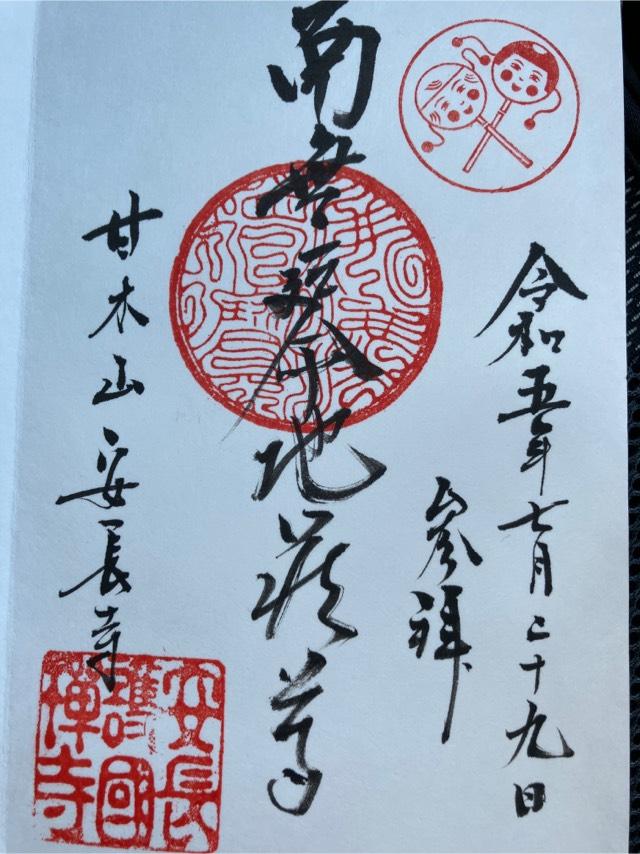 令和五年七月二十九日
参拝
南無延命地蔵尊
甘木山安長寺
安長
護國
禪寺